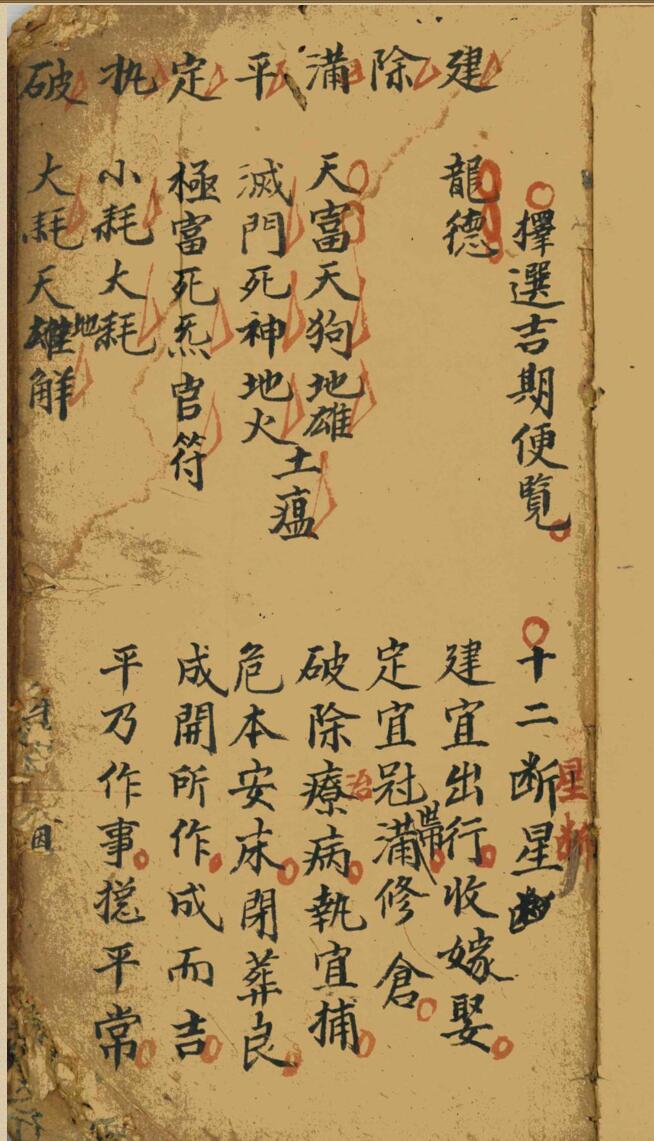 擇選吉期便覧
建 龍德
除
滿 天富天狗地雄土瘟
平 滅門死神地火
定 極富死炁官符
执 小耗大耗
破 大耗天雄地解
十二断星
星断
建宜出行收嫁娶
定宜冠帶滿修倉
破除療治病執宜捕
危本安床閉葬良
成開所作成而吉
平乃作事揔平常